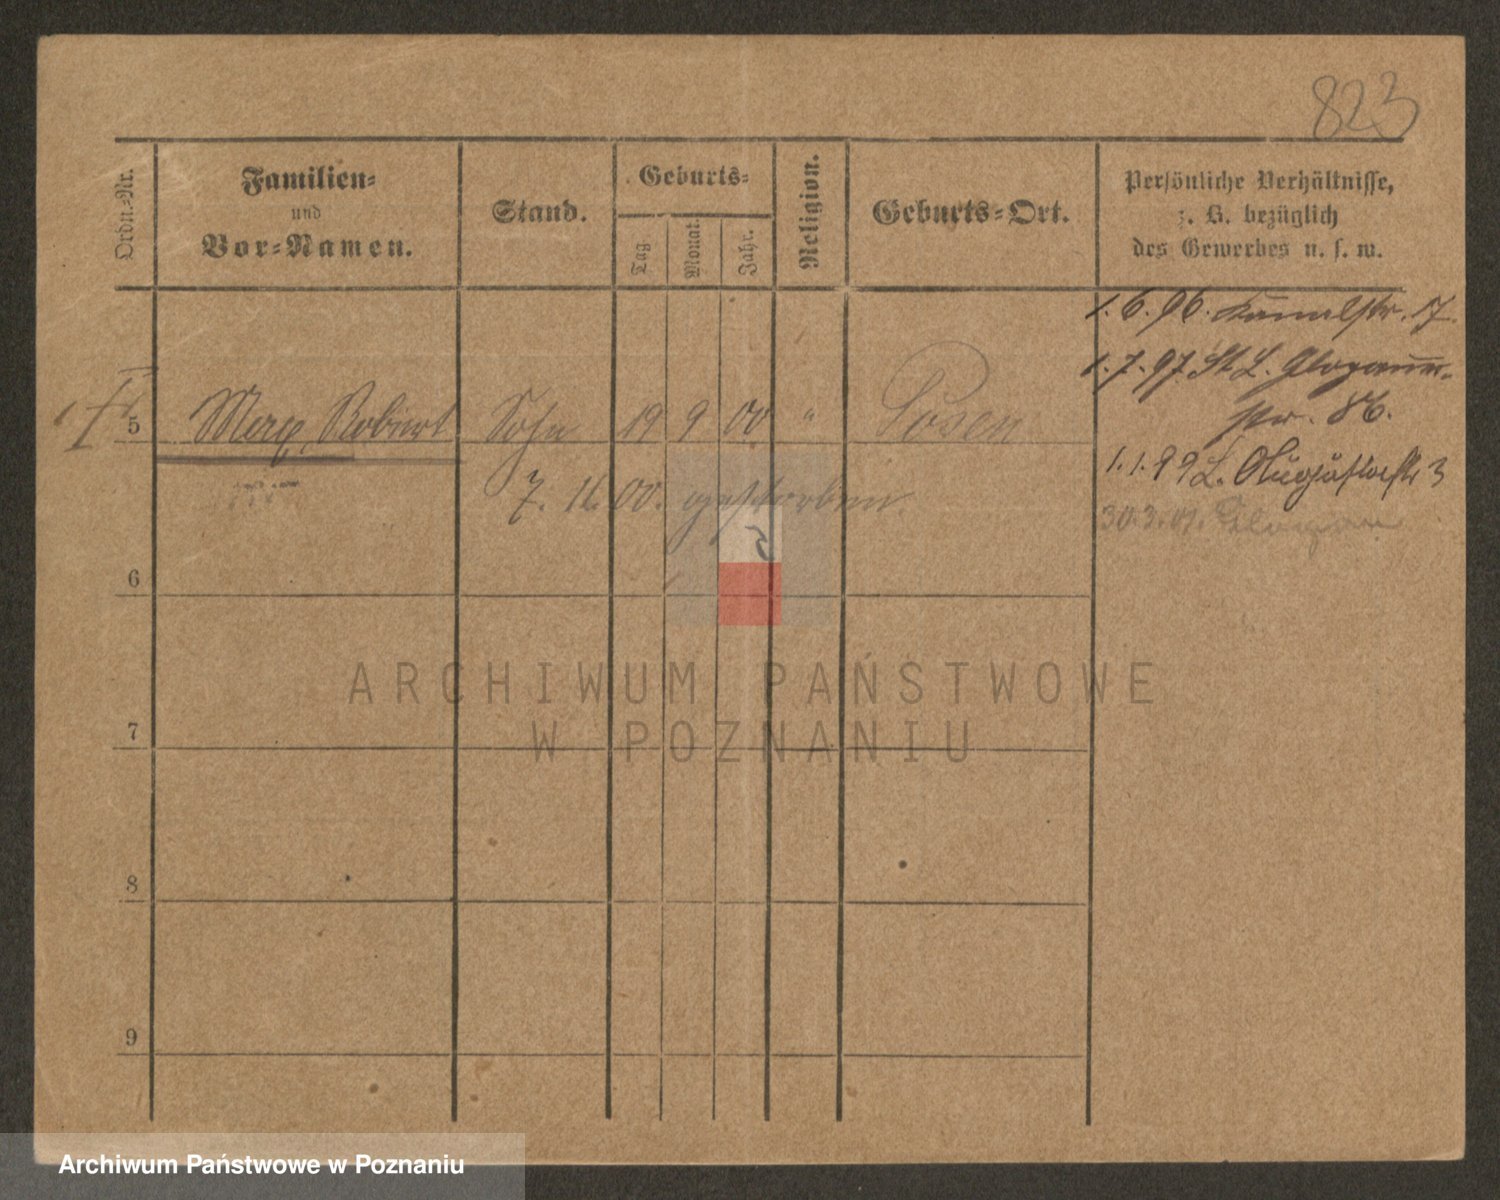 823
Ordn.-Nr.
Familien-
und
Vor-Namen.
Stand.
Geburts-
Tag.
Monat.
Jahr.
Religion.
Geburts-Ort.
Persönliche Verhältnisse,
z. B. bezüglich
des Gewerbes u. s. w.
1.6.96. Kanalstr. 17.
1.7.97. St. L. Glogauer-
str. 86.
1.1.99 L. Augustastr 3
30.3.01. Glogau
5 Robert Sohn 19 9 00 " Posen
7. 11. 00. gestorben.
5
6
7
8
9
ARCHIWUM PAŃSTWOWE
W POZNANIU
Archiwum Państwowe w Poznaniu